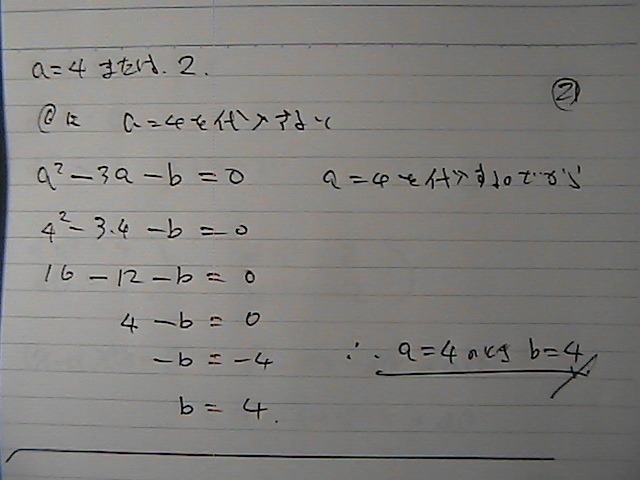 a=4 または. 2.
②
@に a=4を代入すると
a²-3a-b=0 a=4を代入するのですから
4²-3・4-b=0
16-12-b=0
4-b=0
-b=-4 ∴ a=4のとき b=4
b=4.